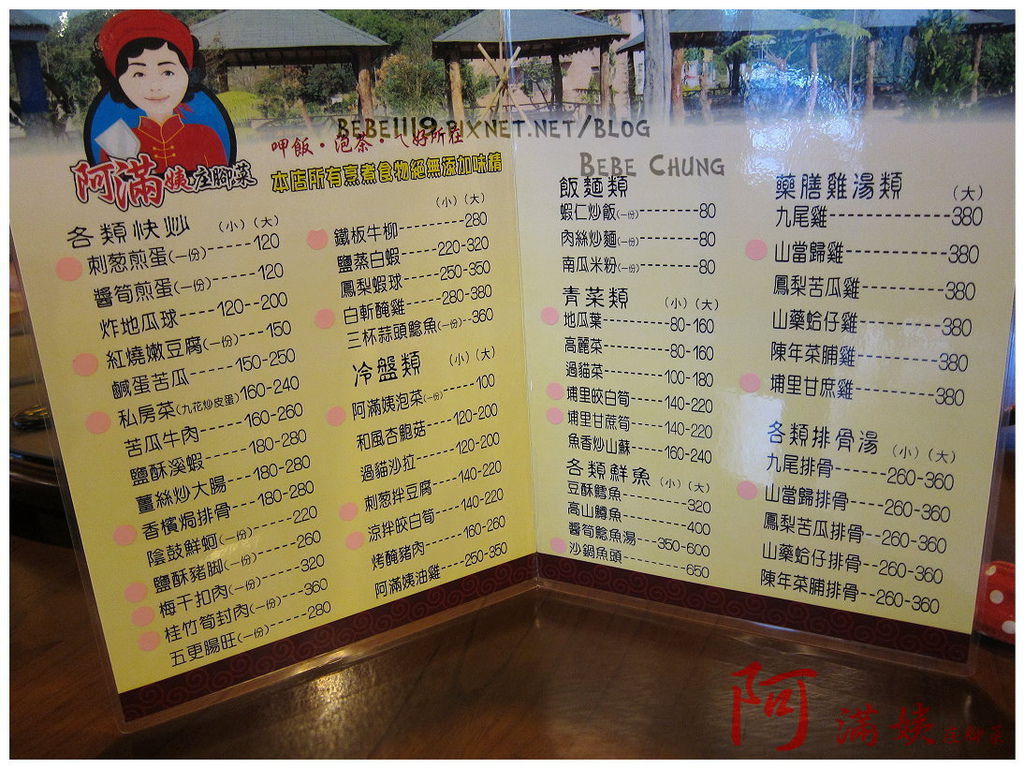 BEBE1119.PIXNET.NET/BLOG
BEBE CHUNG
呷飯・泡茶・ㄟ好所在
阿滿姨庄腳菜
本店所有烹煮食物絕無添加味精
各類快炒 (小)(大)
刺葱煎蛋(一份)------120
醬筍煎蛋(一份)------120
炸地瓜球------120--200
紅燒嫩豆腐(一份)-----150
鹹蛋苦瓜------150-250
私房菜(九花炒皮蛋)160-240
苦瓜牛肉------160-260
鹽酥溪蝦------180-280
薑絲炒大腸----180-280
香檳焗排骨----180-280
陰鼓鮮蚵(一份)------220
鹽酥豬腳(一份)------260
梅干扣肉(一份)------320
桂竹筍封肉(一份)----360
五更腸旺(一份)------280
(小)(大)
鐵板牛柳---------280
鹽蒸白蝦-----220-320
鳳梨蝦球-----250-350
白斬醃雞-----280-380
三杯蒜頭鯰魚(一份)--360
冷盤類 (小)(大)
阿滿姨泡菜(一份)-----100
和風杏鮑菇----120-200
過貓沙拉------120-200
刺葱拌豆腐----140-220
涼拌皎白筍----140-220
烤醃豬肉------160-260
阿滿姨油雞----250-350
飯麵類
蝦仁炒飯(一份)--------80
肉絲炒麵(一份)--------80
南瓜米粉(一份)--------80
青菜類 (小)(大)
地瓜葉--------80-160
高麗菜--------80-160
過貓菜-------100-180
埔里皎白筍----140-220
埔里甘蔗筍----140-220
魚香炒山蘇----160-240
各類鮮魚 (小)(大)
豆酥鱈魚---------320
高山鱒魚---------400
醬筍鯰魚湯---350-600
沙鍋魚頭---------650
藥膳雞湯類 (大)
九尾雞-------------380
山當歸雞-----------380
鳳梨苦瓜雞---------380
山藥蛤仔雞---------380
陳年菜脯雞---------380
埔里甘蔗雞---------380
各類排骨湯 (小)(大)
九尾排骨------260-360
山當歸排骨----260-360
鳳梨苦瓜排骨--260-360
山藥蛤仔排骨--260-360
陳年菜脯排骨--260-360
阿滿姨庄腳菜